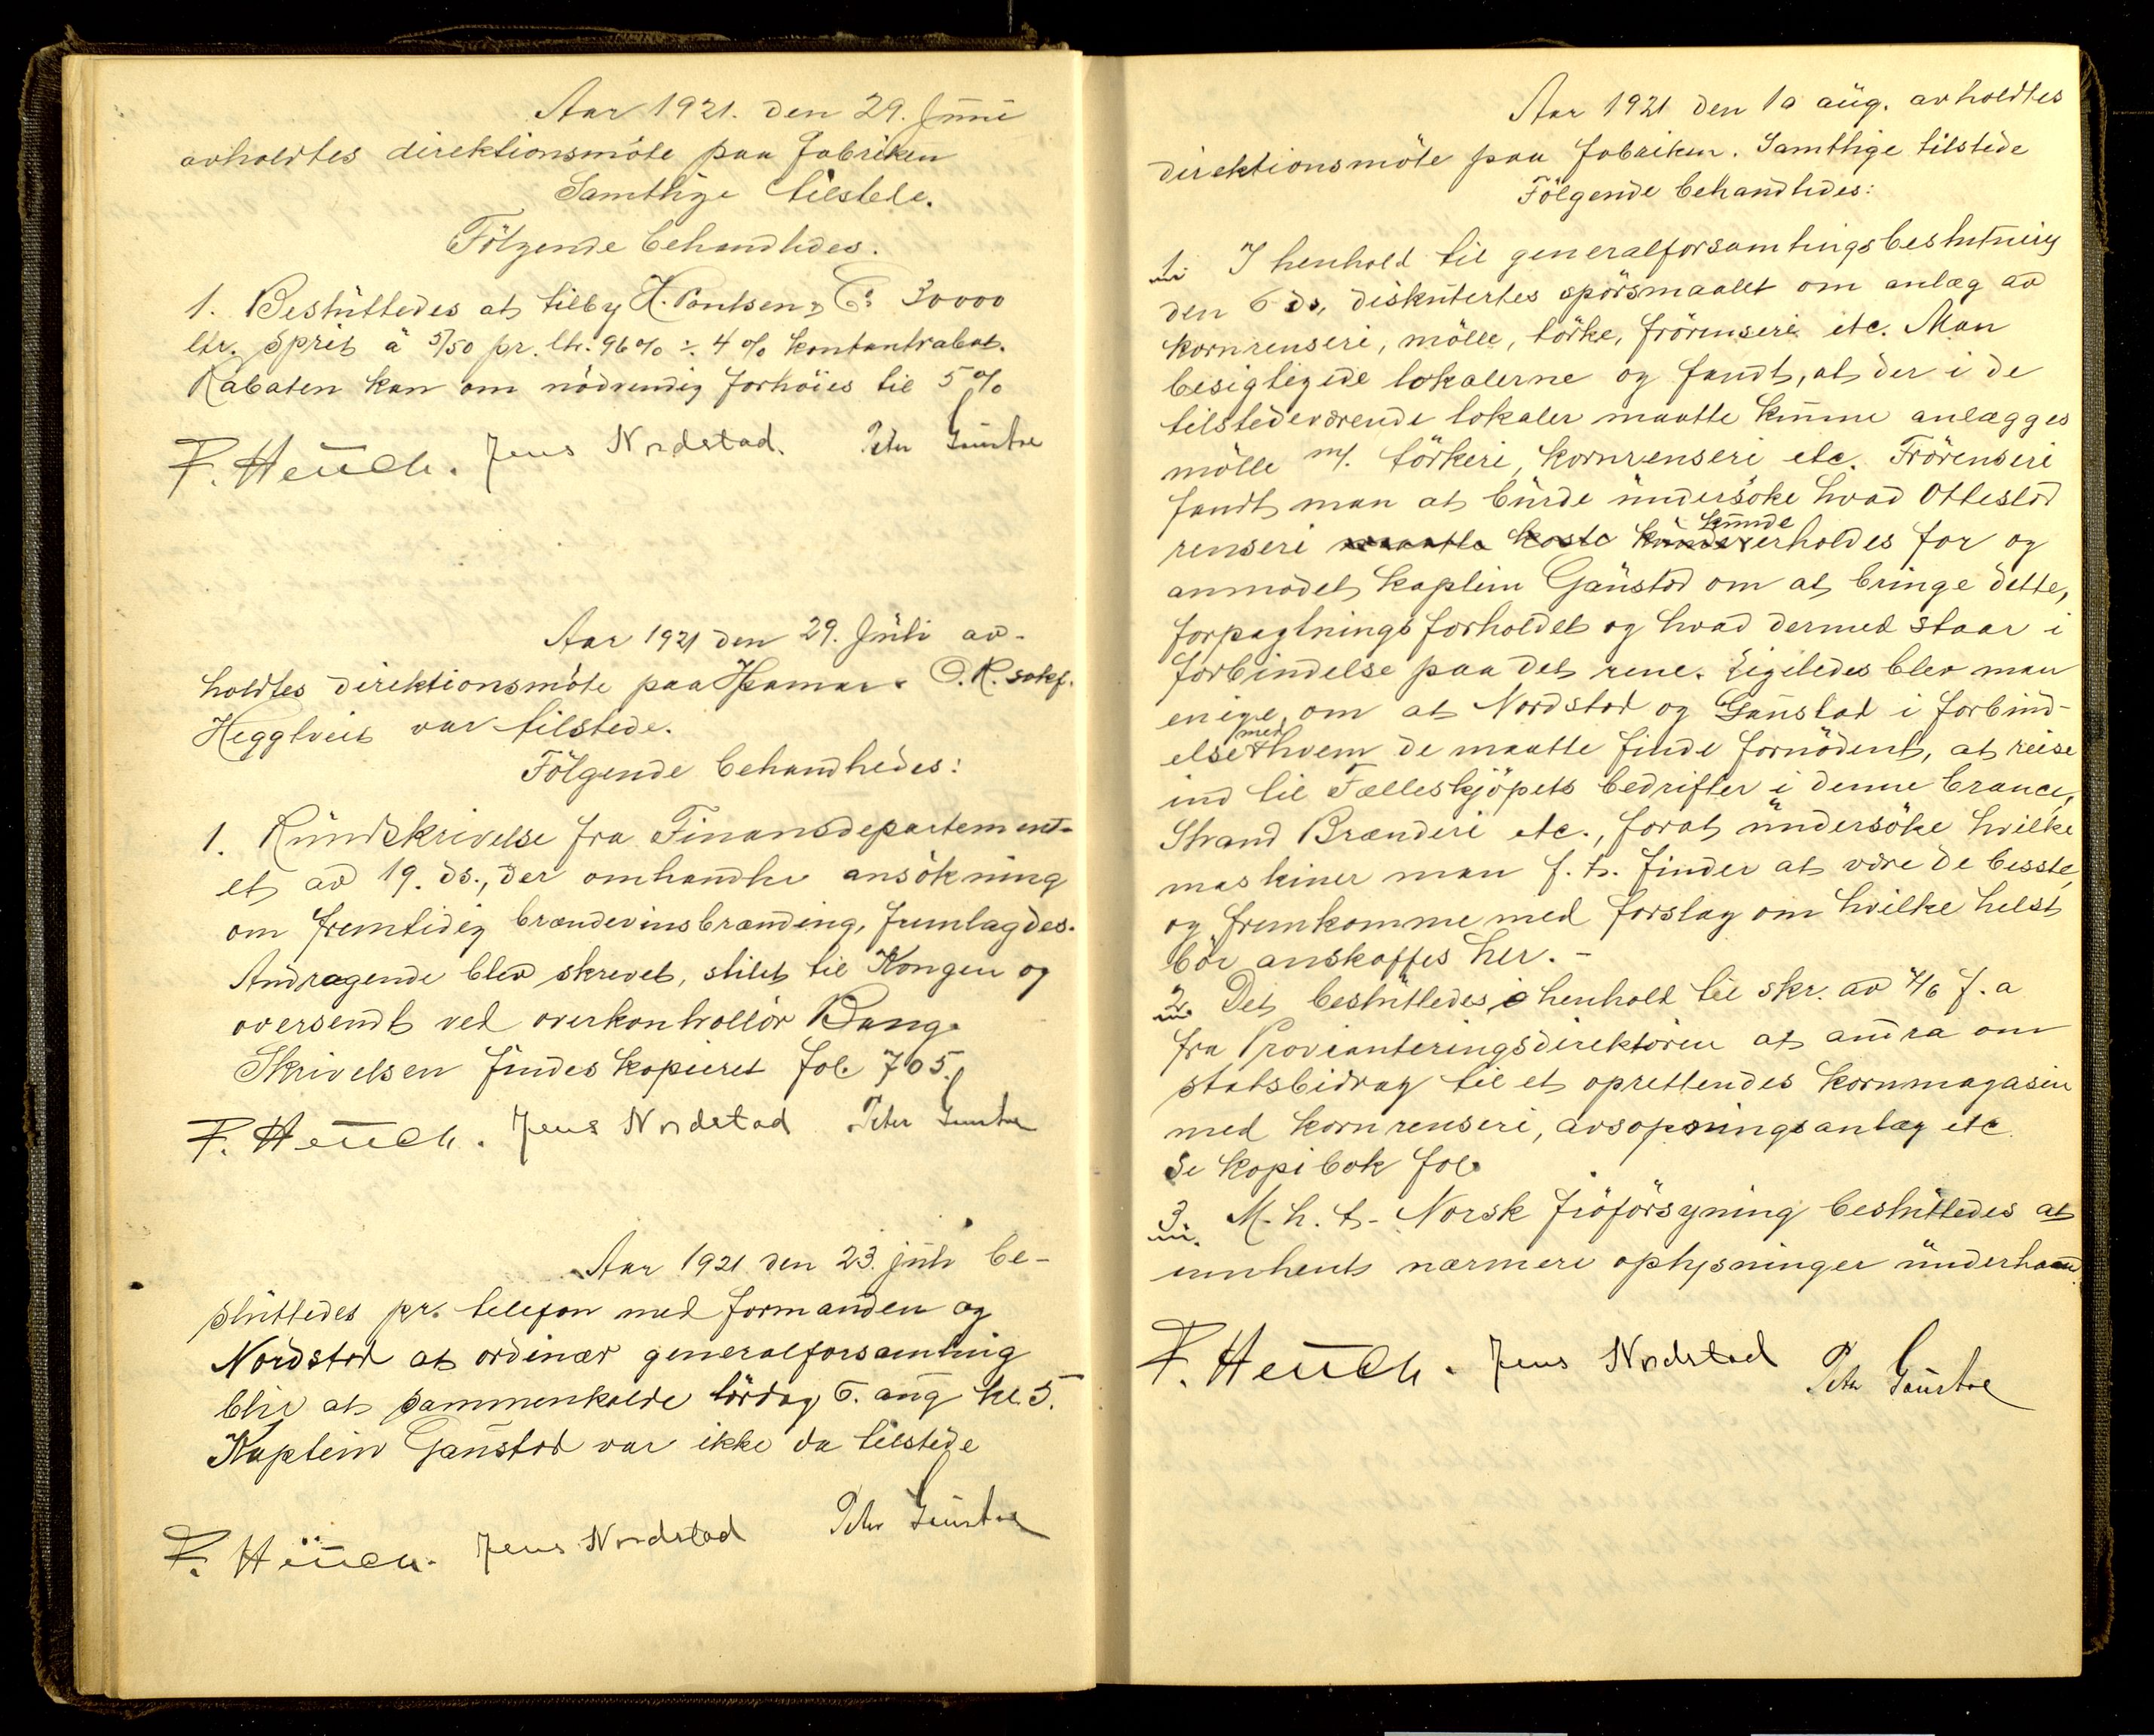 Aar 1921. den 29. Juni
avholdtes direktionsmöte paa Fabriken
Samtlige tilstede.
Fölgende behandledes.
1. Besluttedes at tilby H. Poulsen & Co 30000
ltr. Sprit á 5/50 pr. ltr. 96% ÷ 4% kontantrabat.
Rabaten kan om nödvendig forhöies til 5%
F. Heuch. Jens Nordstad. Peter Gaustad
Aar 1921 den 29. Juli av-
holdtes direktionsmöte paa Hamar. O.R. sakf.
Heggtveit var tilstede.
Fölgende behandledes:
1. Rundskrivelse fra Finansdepartement-
et av 19. ds., der omhandler ansökning
om fremtidig brændevinsbrænding, fremlagdes.
Andragende blev skrevet, stilet til Kongen og
oversendt ved overkontrollör Bang.
Skrivelsen findes kopieret fol. 705.
F. Heuch. Jens Nordstad Peter Gaustad
Aar 1921 den 23. juli be-
sluttedes pr. telefon med formanden og
Nordstad at ordinær generalforsamling
blir at sammenkalde lördag 6. aug kl. 5.
Kaptein Gaustad var ikke da tilstede
F. Heuch. Jens Nordstad Peter Gaustad
Aar 1921 den 10 aug. avholdtes
direktionsmöte paa Fabriken. Samtlige tilstede
Fölgende behandledes:
1. I henhold til generalforsamlingsbeslutning
den 6 ds, diskutertes spörsmaalet om anlæg av
kornrenseri, mölle, törke, frörenseri etc. Man
besigtigede lokalerne og fandt, at der i de
tilstedeværende lokaler maatte kunne anlægges
mölle m/. törkeri, kornrenseri etc. Frörenseri
fandt man at burde undersöke hvad Ottestad
renseri maatte koste kunde kunde erholdes for og
anmodet kaptein Gaustad om at bringe dette,
forpagtningsforholdet og hvad dermed staar i
forbindelse paa det rene. Ligeledes blev man
enige om at Nordstad og Gaustad i forbind-
else med hvem de maatte finde fornödent, at reise
ind til Fælleskjöpets bedrifter i denne brance,
Strand Brænderi etc., forat undersöke hvilke
maskiner man f. t. finder at være de besste,
og fremkomme med forslag om hvilke helst
bör anskaffes her. -
2. Det besluttedes i henhold til skr. av 4/6 f. a
fra Provianteringsdirektören at andra om
statsbidrag til et oprettendes kornmagasin
med kornrenseri, avsopningsanlæg etc.
Se kopibok fol.
3. M. h. t. Norsk Fröforsyning besluttedes at
innhente nærmere oplysninger underhaand.
F. Heuch. Jens Nordstad Peter Gaustad